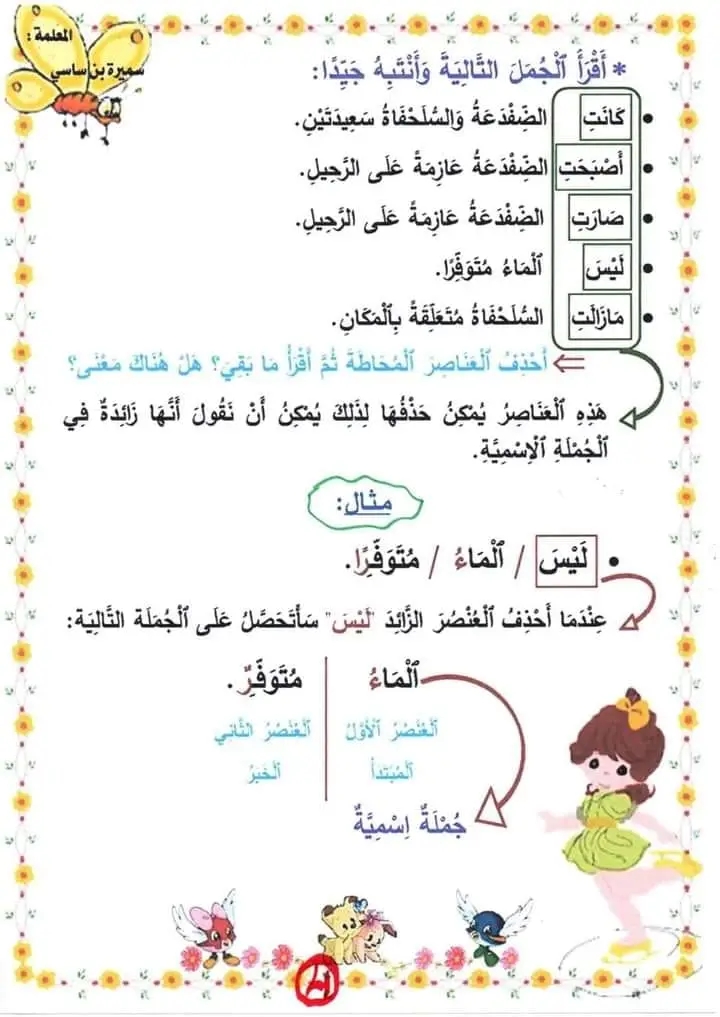 المعلمة :
سميرة بن ساسي
* أَقْرَأُ ٱلْجُمَلَ التَّالِيَةَ وَأَنْتَبِهُ جَيِّدًا:
• كَانَتِ الضِّفْدَعَةُ وَالسُّلَحْفَاةُ سَعِيدَتَيْنِ.
• أَصْبَحَتِ الضِّفْدَعَةُ عَازِمَةً عَلَى الرَّحِيلِ.
• صَارَتِ الضِّفْدَعَةُ عَازِمَةً عَلَى الرَّحِيلِ.
• لَيْسَ ٱلْمَاءُ مُتَوَفِّرًا.
• مَازَالَتِ السُّلَحْفَاةُ مُتَعَلِّقَةً بِٱلْمَكَانِ.
⇐ أَحْذِفُ ٱلْعَنَاصِرَ ٱلْمُحَاطَةَ ثُمَّ أَقْرَأُ مَا بَقِيَ؟ هَلْ هُنَاكَ مَعْنَى؟
هَذِهِ ٱلْعَنَاصِرُ يُمْكِنُ حَذْفُهَا لِذَلِكَ يُمْكِنُ أَنْ نَقُولَ أَنَّهَا زَائِدَةٌ فِي
ٱلْجُمْلَةِ ٱلْاِسْمِيَّةِ.
مثال:
• لَيْسَ / ٱلْمَاءُ / مُتَوَفِّرًا.
عِنْدَمَا أَحْذِفُ ٱلْعُنْصُرَ الزَّائِدَ "لَيْسَ" سَأَتَحَصَّلُ عَلَى ٱلْجُمْلَةِ التَّالِيَةِ:
ٱلْمَاءُ مُتَوَفِّرٌ.
ٱلْعُنْصُرُ ٱلْأَوَّلُ ٱلْعُنْصُرُ الثَّانِي
ٱلْمُبْتَدَأُ ٱلْخَبَرُ
جُمْلَةٌ اِسْمِيَّةٌ